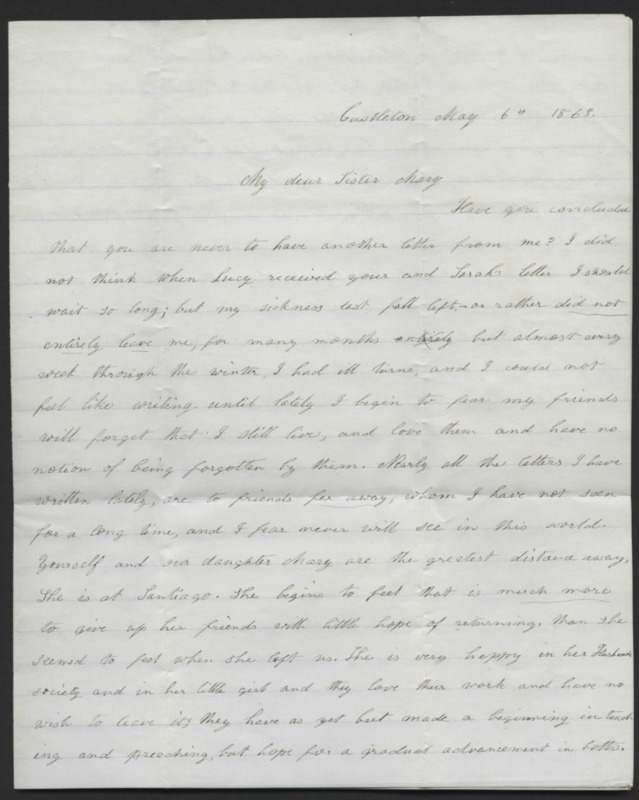 Castleton May 6th 1868.
My dear Sister Mary
Have you concluded
that you are never to have another letter from me? I did
not think when Lucy received your and Sarahs letter I should
wait so long; but my sickness last fall left,- or rather did not
entirely leave me, for many months entirely but almost every
week through the winter, I had ill turns, and I could not
feel like writing until lately I begin to fear my friends
will forget that I still live, and love them and have no
notion of being forgotten by them. Nearly all the letters I have
written lately, are to friends far away, whom I have not seen
for a long time, and I fear never will see in this world.
Yourself and our daughter Mary are the greatest distance away,
She is at Santiago. She begins to feel that is much more
to give up her friends with little hope of returning, than she
seemed to feel when she left us. She is very happy in her Husbands
society and in her little girl and they love their work and have no
wish to leave it; they have as yet but made a beginning in teach
ing and preaching, but hope for a gradual advancement in both.